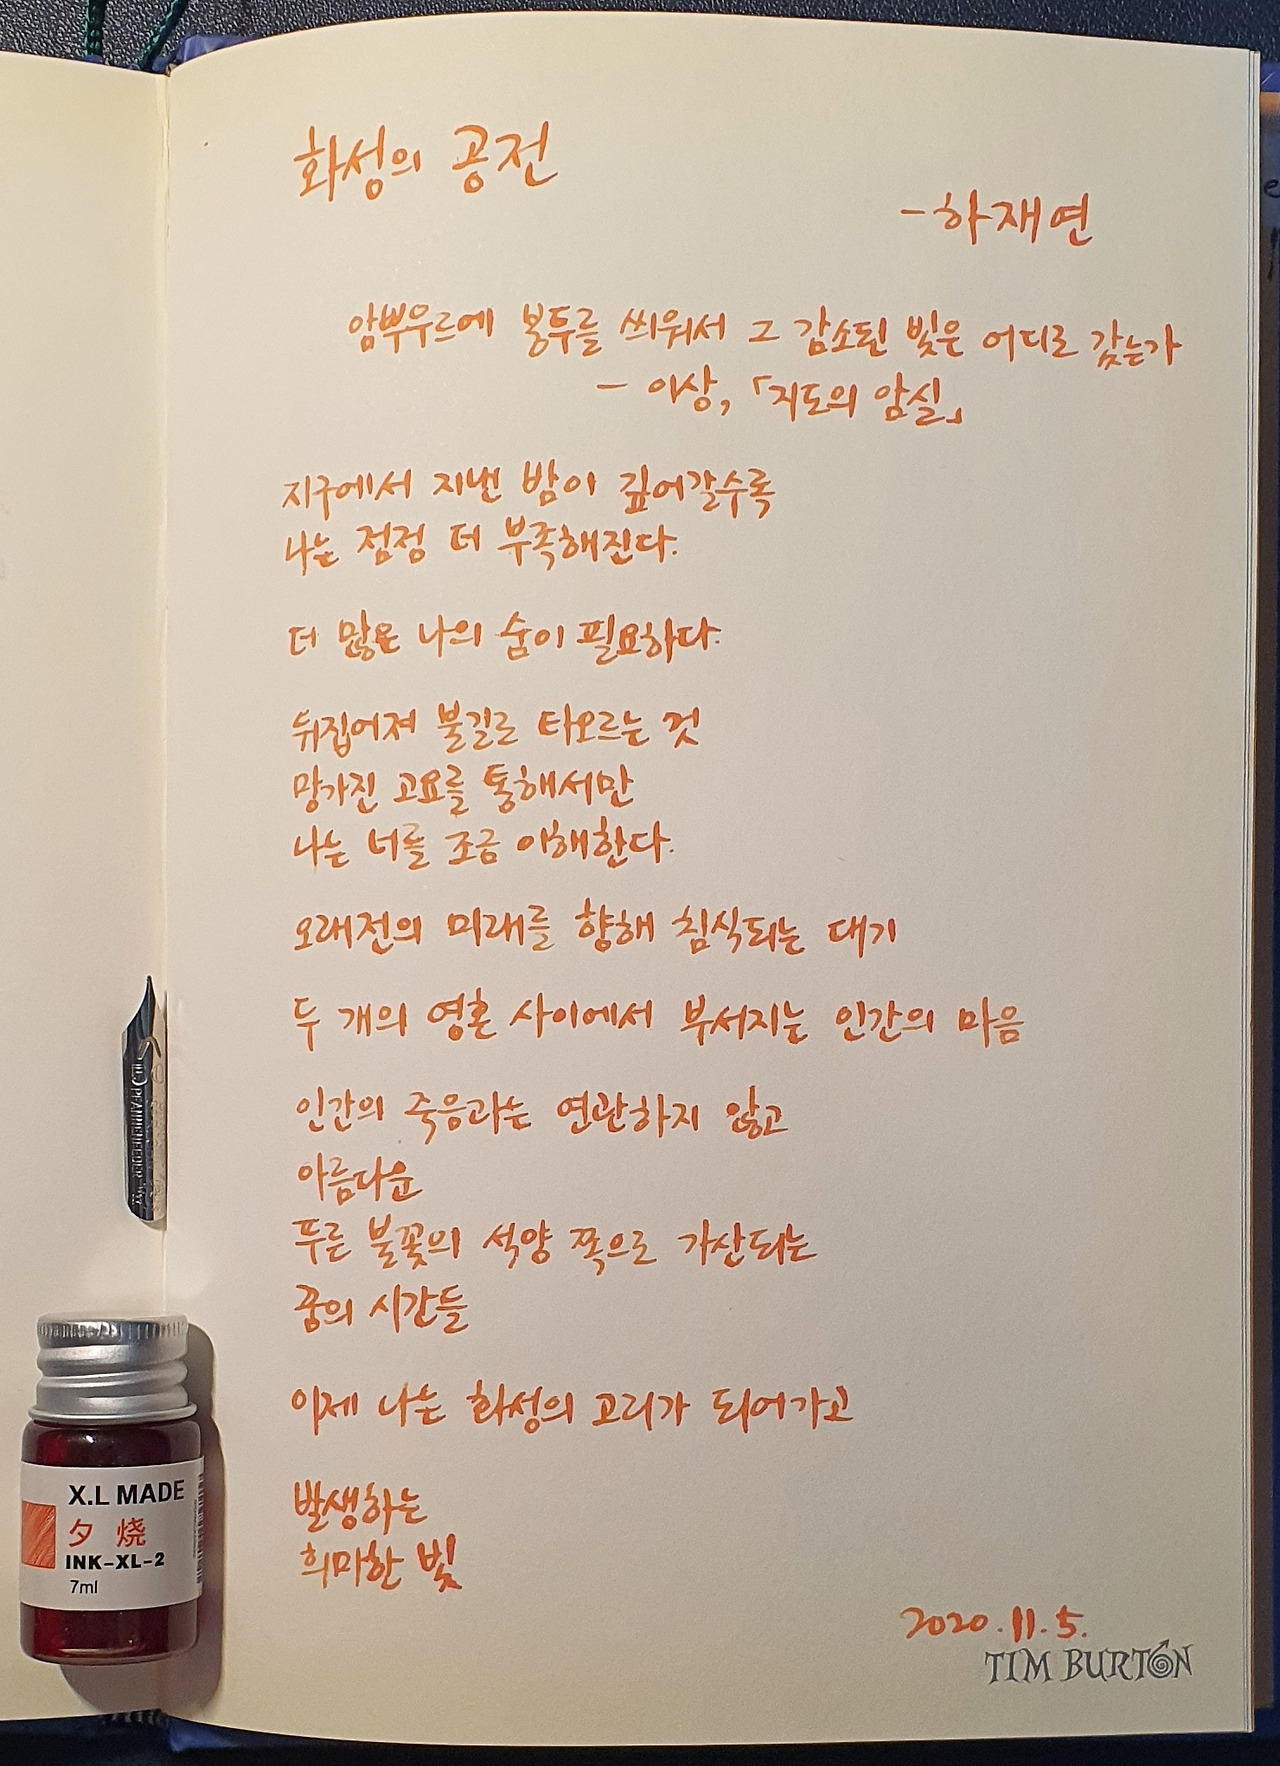 화성의 공전
-하재연
암뿌우르에 봉투를 씌워서 그 감소된 빛은 어디로 갔는가
- 이상, 「지도의 암실」
지구에서 지낸 밤이 깊어갈수록
나는 점점 더 부족해진다.
더 많은 나의 숨이 필요하다.
뒤집어져 불길로 타오르는 것
망가진 고요를 통해서만
나는 너를 조금 이해한다.
오래전의 미래를 향해 침식되는 대기
두 개의 영혼 사이에서 부서지는 인간의 마음
인간의 죽음과는 연관하지 않고
아름다운
푸른 불꽃의 석양 쪽으로 가산되는
꿈의 시간들
이제 나는 화성의 고리가 되어가고
발생하는
희미한 빛
2020.11.5.
TIM BURTON
X.L MADE
夕 烧
INK-XL-2
7ml